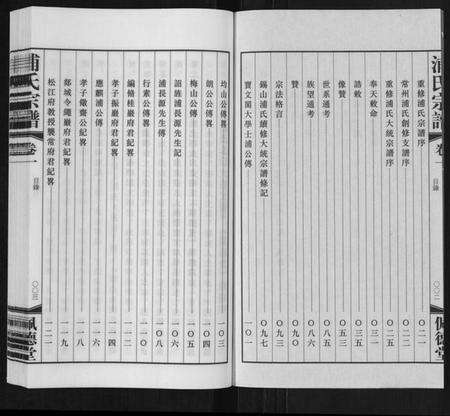 浦氏宗譜
卷一
目錄
〇〇二
佩德堂
重修浦氏宗譜序 〇二一
常州浦氏創修支譜序 〇二二
重修浦氏大統宗譜序 〇二二
奉天敕命 〇三一
誥敕 〇三五
像贊 〇五三
世系通考 〇六五
族望通考 〇八六
贊 〇九〇
宗法格言 〇九三
錫山浦氏續修大統宗譜條記 〇九七
寶文閣大學士浦公傳 一〇一
均山公傳畧 一〇三
胡公公傳畧 一〇四
梅山公傳 一〇五
詔旌浦長源先生記 一〇七
浦長源先生傳 一〇八
行素公傳畧 一一〇
編脩桂巖府君紀畧 一一二
孝子振巖府君紀畧 一一四
應麒浦公傳 一一六
孝子儆齋公紀畧 一一八
郯城令繩巖府君紀畧 一一九
松江府教授襲常府君紀畧 一二一
浦氏宗譜
卷一
目錄
〇〇三
佩德堂